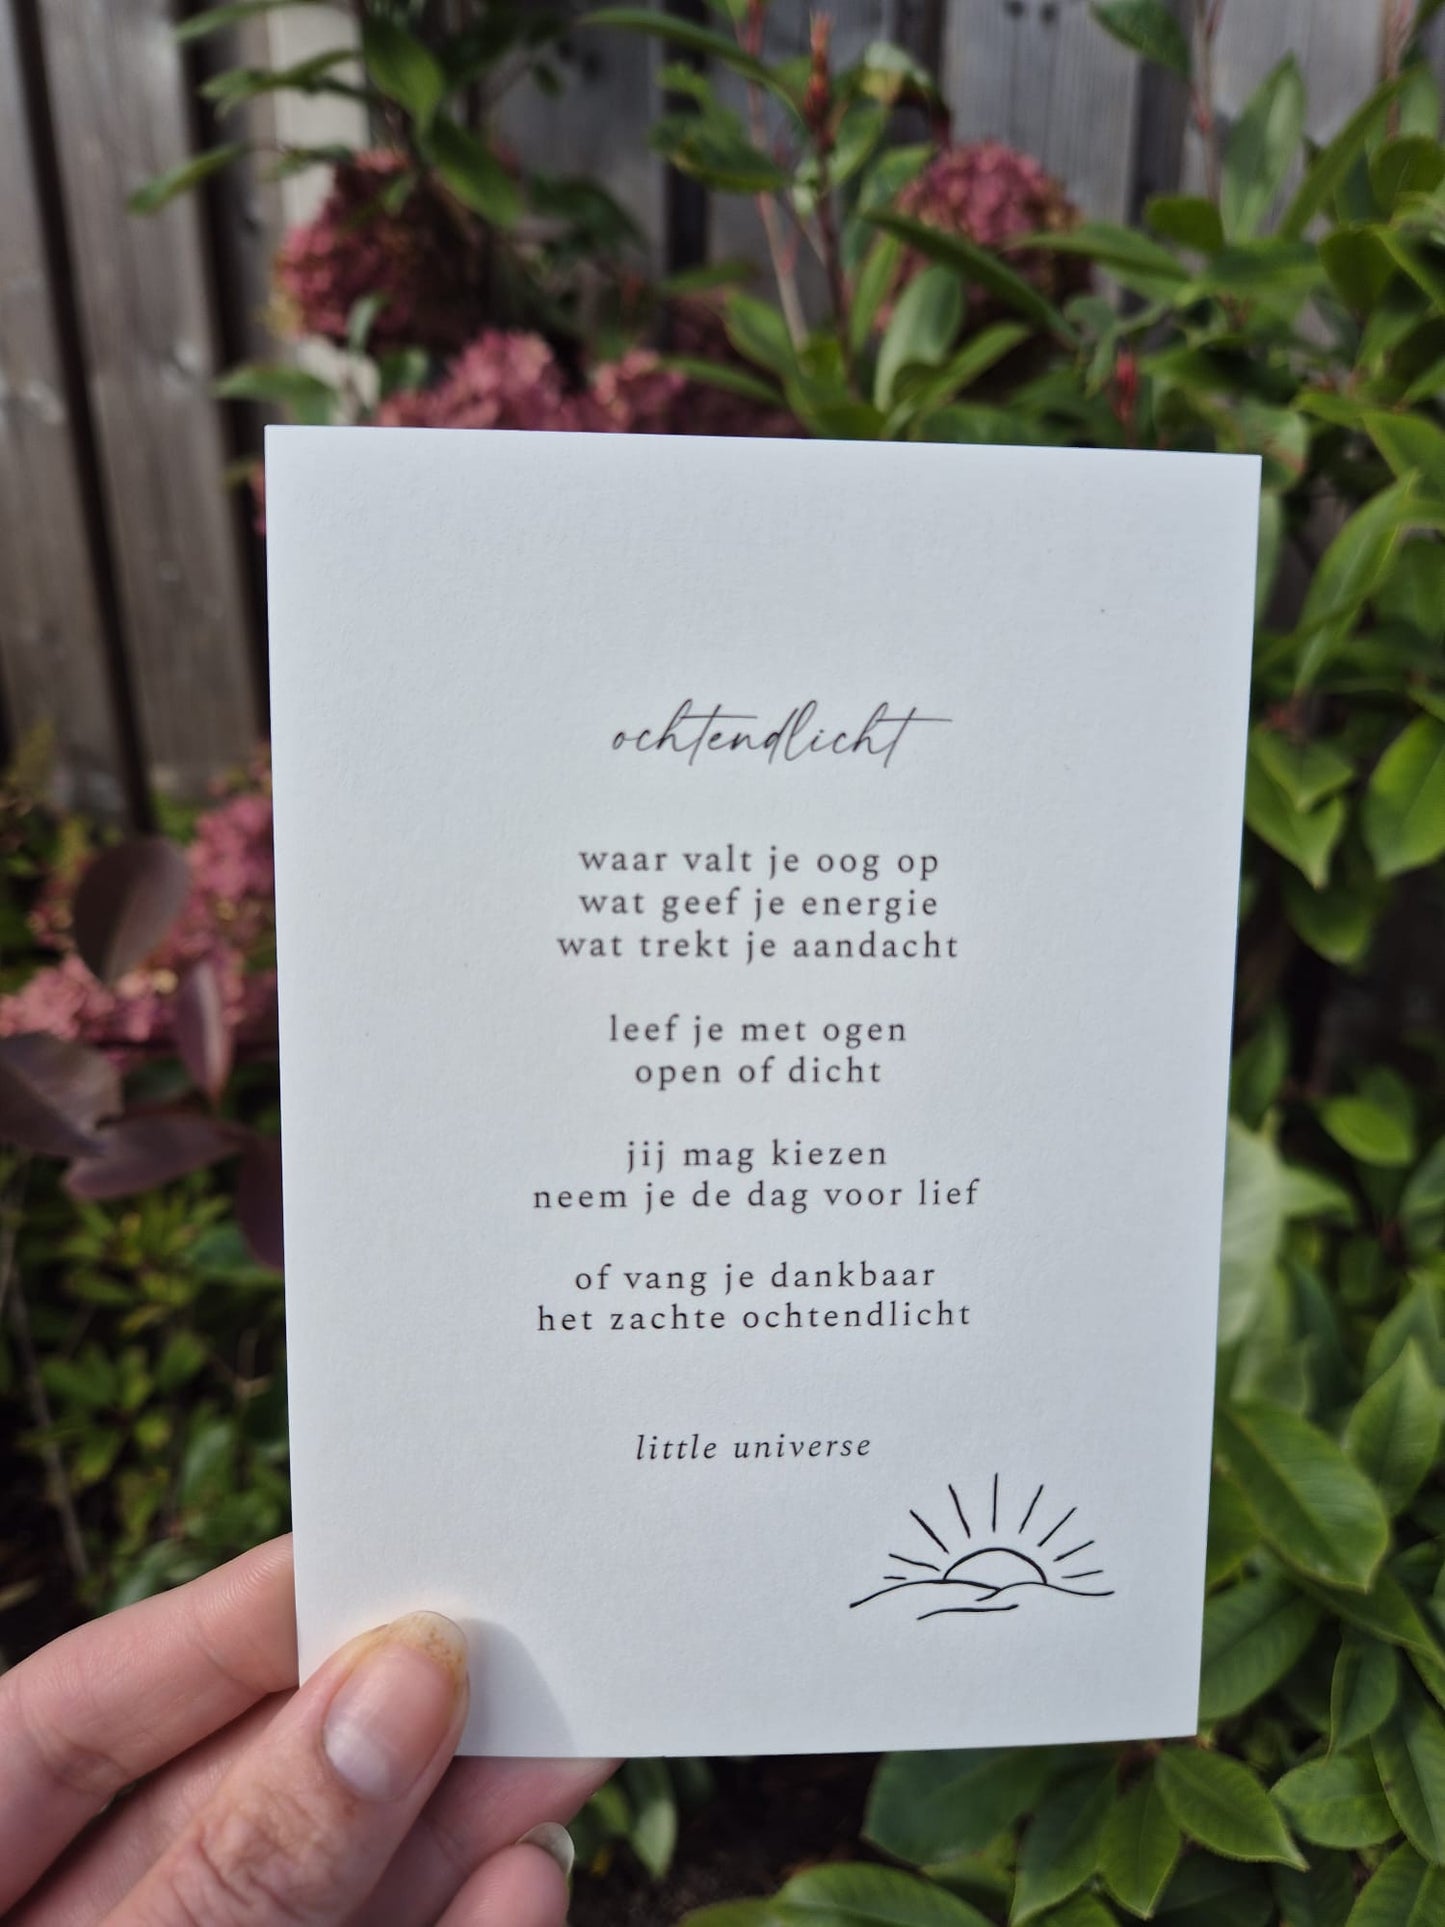 ochtendlicht
waar valt je oog op
wat geef je energie
wat trekt je aandacht
leef je met ogen
open of dicht
jij mag kiezen
neem je de dag voor lief
of vang je dankbaar
het zachte ochtendlicht
little universe